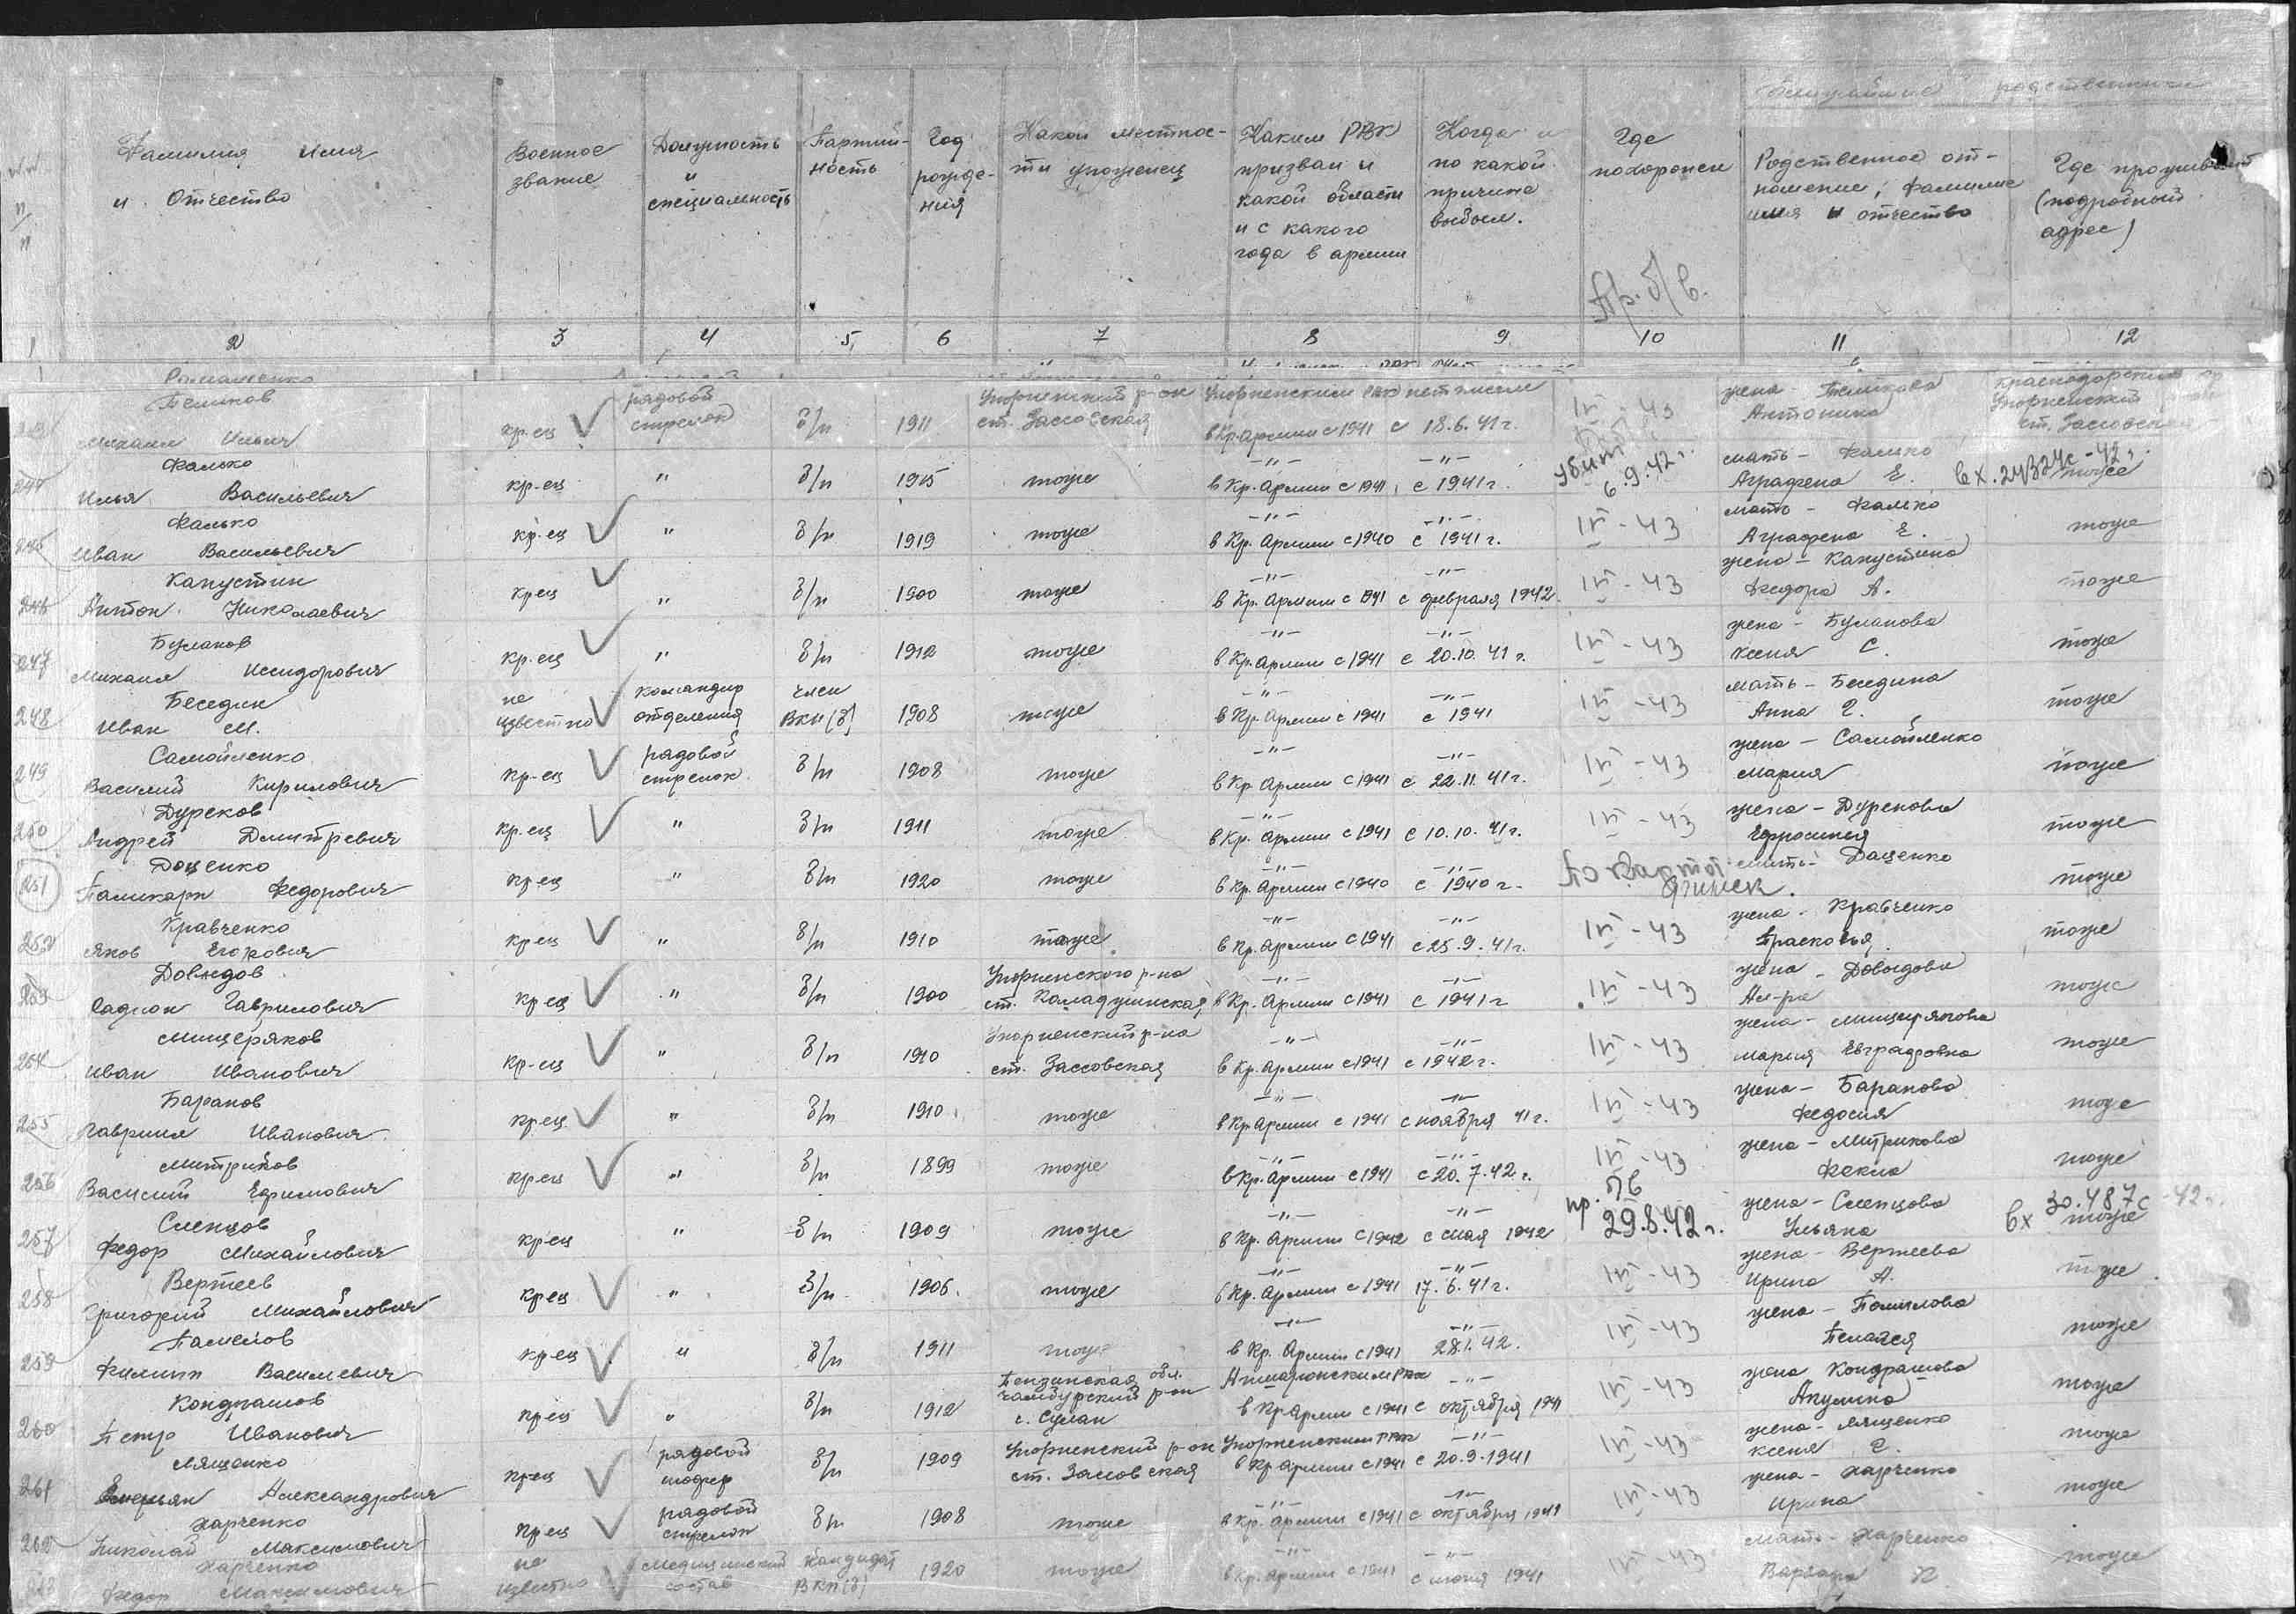 Ближайшие родственники
№№ п/п
Фамилия имя и отчество
Военное звание
Должность и специальность
Партийность
Год рождения
Какой местности уроженец
Каким РВК призван и какой области и с какого года в армии
Когда и по какой причине выбыл.
Где похоронен
Родственное отношение, фамилия имя и отчество
Где проживает (подробный адрес)
Пр. б/в.
1 2 3 4 5 6 7 8 9 10 11 12
Романенко
Беликов
Михаил Ильич кр.ец рядовой стрелок б/п 1911 Упорненский р-он ст. Зассовская Упорненским РВК в Кр.Армии с 1941 нет писем с 18.6.41 г. IV-43 жена - Беликова Антонина Краснодарский Упорненский ст. Зассовская
244 Фалько
Илья Васильевич кр-ец " б/п 1915 тоже -"- в Кр. Армии с 1941 -"- с 1941 г. убит 6.9.42 г. мать - Фалько Аграфена Е. вх. 24324с-42 г. тоже
245 Фалько
Иван Васильевич кр-ец " б/п 1919 тоже -"- в Кр. Армии с 1940 -"- с 1941 г. IV-43 мать - Фалько Аграфена Е. тоже
246 Капустин
Антон Николаевич кр.ец " б/п 1900 тоже -"- в Кр. Армии с 1941 -"- с февраля 1942 IV-43 жена - Капустина Федора А. тоже
247 Буланов
Михаил Исидорович кр.ец " б/п 1912 тоже -"- в Кр. Армии с 1941 -"- с 20.10.41 г. IV-43 жена - Буланова Ксения С. тоже
248 Беседин
Иван М. не известно командир отделения член ВКП(б) 1908 тоже -"- в Кр. Армии с 1941 -"- с 1941 IV-43 мать - Беседина Анна Г. тоже
249 Самойленко
Василий Кирилович кр-ец рядовой стрелок б/п 1908 тоже -"- в Кр. Армии с 1941 -"- с 22.11.41 г. IV-43 жена - Самойленко Мария тоже
250 Дуреков
Андрей Дмитревич кр.ец " б/п 1911 тоже -"- в Кр. Армии с 1941 с 10.10.41 г. IV-43 жена - Дурекова Ефросинья тоже
251 Доценко
Паликарп Федорович кр.ец " б/п 1920 тоже -"- в Кр. Армии с 1940 -"- с 1940 г. мать - Даценко тоже
252 Кравченко
Яков Егорович кр.ец " б/п 1910 тоже -"- в Кр. Армии с 1941 -"- с 25.9.41 г. IV-43 жена - Кравченко Прасковья тоже
253 Довыдов
Радион Гаврилович кр.ец " б/п 1900 Упорненского р-на ст. Каладжинская -"- в Кр. Армии с 1941 -"- с 1941 г IV-43 жена - Довыдова Ал-ра тоже
254 Мищеряков
Иван Иванович кр-ец " б/п 1910 Упорненский р-на ст. Зассовская -"- в Кр. Армии с 1941 -"- с 1942 г. IV-43 жена - Мищерякова Мария Евграфовна тоже
255 Баранов
Гавриил Иванович кр.ец " б/п 1910 тоже -"- в Кр Армии с 1941 -"- с ноября 41 г. IV-43 жена - Баранова Федосия тоже
256 Митриков
Василий Ефимович кр.ец " б/п 1899 тоже -"- в Кр. Армии с 1941 -"- с 20.7.42 г. IV-43 жена - Митрикова Фекла тоже
257 Слепцов
Федор Михайлович кр-ец " б/п 1909 тоже -"- в Кр. Армии с 1942 -"- с мая 1942 пр. бв 29.8.42 г. жена - Слепцова Ульяна вх 30.487с-42 г. тоже
258 Вертеев
Григорий Михайлович кр.ец " б/п 1906. тоже -"- в Кр. Армии с 1941 -"- 17.6.41 г. IV-43 жена - Вертеева Ирина А. тоже
259 Памелов
Филипп Василевич кр.ец " б/п 1911 тоже -"- в Кр. Армии с 1941 -"- 28.1.42. IV-43 жена - Памилова Пелагея тоже
260 Кондрашов
Петр Иванович кр.ец " б/п 1912 Пензинская обл. р-он с. Сулак Апшеронским РВК в Кр Армии с 1941 -"- с октября 1941 IV-43 жена Кондрашова Акулина тоже
261 Лященко
Емерьян Александрович кр.ец рядовой шофер б/п 1909 Упорненский р-он ст. Зассовская Упорненским РВК в Кр Армии с 1941 -"- с 20.9.1941 IV-43 жена - Лященко Ксения Г. тоже
262 Харченко
Николай Максимович кр.ец рядовой стрелок б/п 1908 тоже -"- в Кр. Армии с 1941 -"- с октября 1941 IV-43 жена - Харченко Ирина тоже
263 Харченко
Федор Максимович не известно медицинский состав кандидат ВКП(б) 1920 тоже -"- в Кр. Армии с 1941 -"- с июня 1941 IV-43 мать - Харченко Варвара тоже